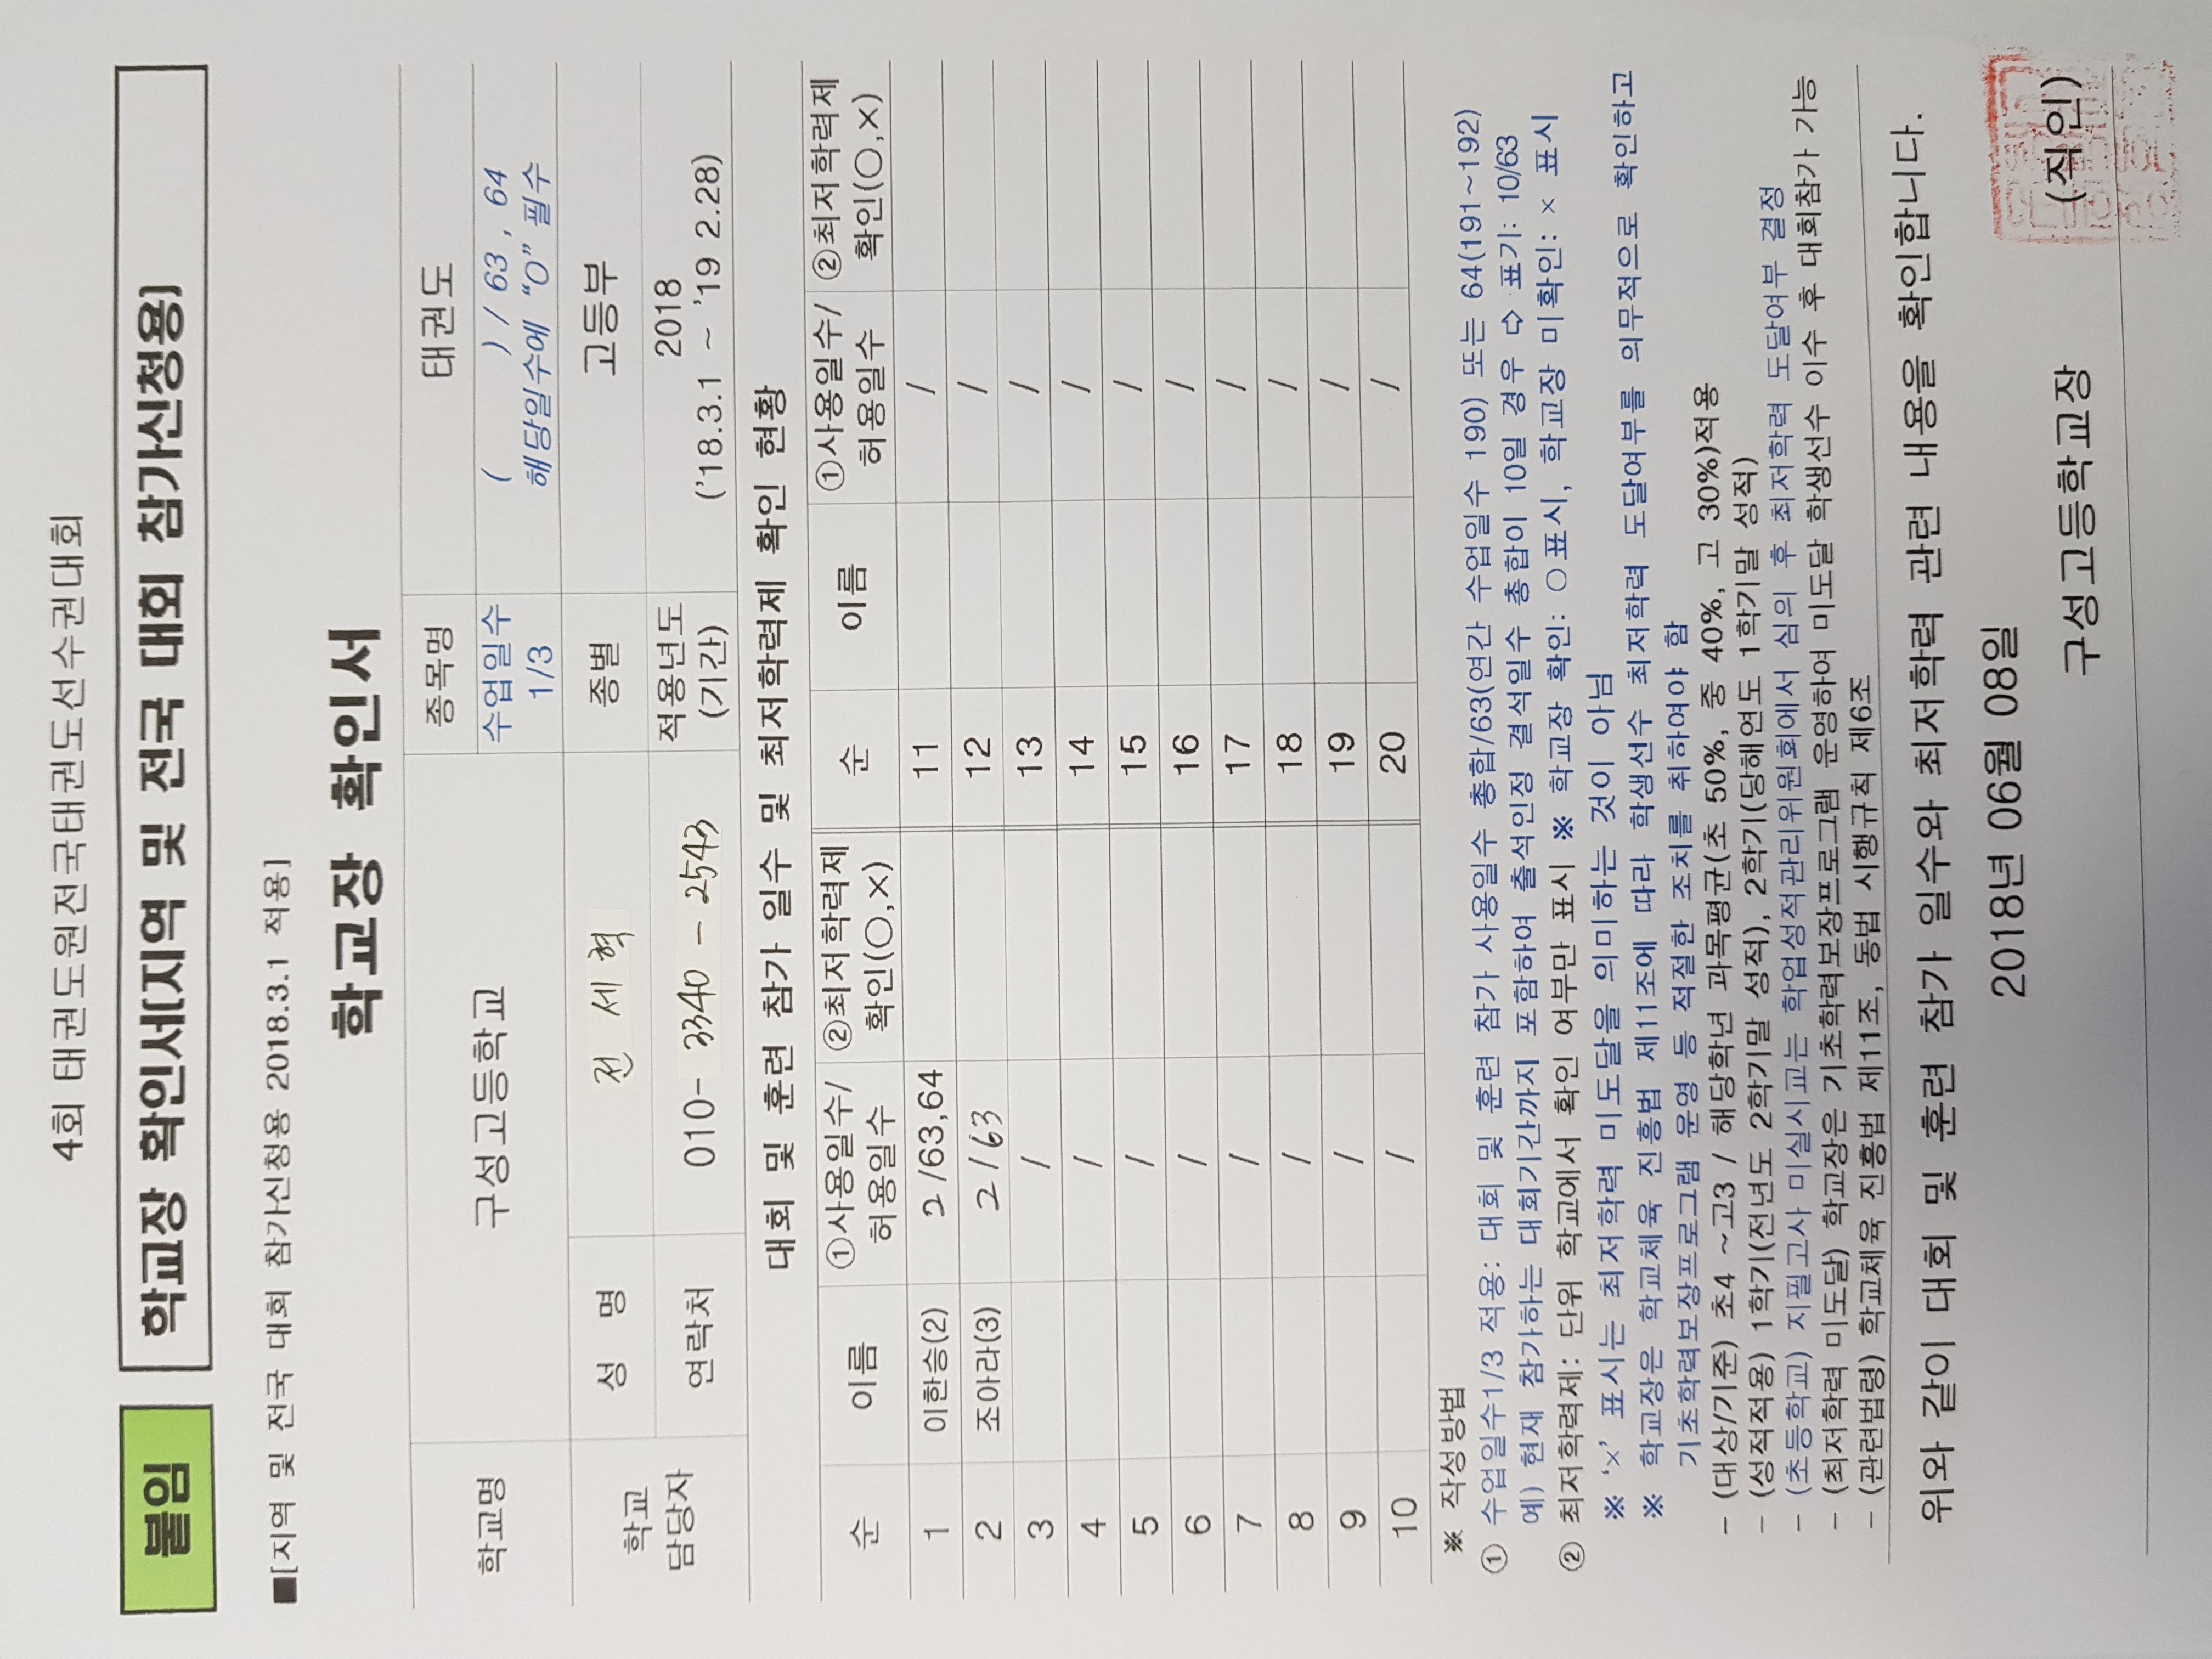 4회 태권도원전국태권도선수권대회
붙임 학교장 확인서[지역 및 전국 대회 참가신청용]
■[지역 및 전국 대회 참가신청용 2018.3.1 적용]
학교장 확인서
학교명 구성고등학교 종목명 태권도
수업일수 1/3 ( ) / 63 , 64
해당일수에 “O” 필수
학교 담당자 성 명 전 세 혁 종별 고등부
연락처 010- 3340 - 2543 적용년도 (기간) 2018
('18.3.1 ~ '19 2.28)
대회 및 훈련 참가 일수 및 최저학력제 확인 현황
순 이름 ①사용일수/허용일수 ②최저학력제 확인(○,×) 순 이름 ①사용일수/허용일수 ②최저학력제 확인(○,×)
1 이한승(2) 2/63,64 11 /
2 조아라(3) 2/63 12 /
3 / 13 /
4 / 14 /
5 / 15 /
6 / 16 /
7 / 17 /
8 / 18 /
9 / 19 /
10 / 20 /
※ 작성방법
① 수업일수1/3 적용: 대회 및 훈련 참가 사용일수 총합/63(연간 수업일수 190) 또는 64(191~192)
예) 현재 참가하는 대회기간까지 포함하여 출석인정 결석일수 총합이 10일 경우 ⇨ 표기: 10/63
② 최저학력제: 단위 학교에서 확인 여부만 표시 ※ 학교장 확인: ○표시, 학교장 미확인: × 표시
※ ‘×’ 표시는 최저학력 미도달을 의미하는 것이 아님
※ 학교장은 학교체육 진흥법 제11조에 따라 학생선수 최저학력 도달여부를 의무적으로 확인하고
기초학력보장프로그램 운영 등 적절한 조치를 취하여야 함
- (대상/기준) 초4 ~고3 / 해당학년 과목평균(초 50%, 중 40%, 고 30%)적용
- (성적적용) 1학기(전년도 2학기말 성적), 2학기(당해연도 1학기말 성적)
- (초등학교) 지필고사 미실시교는 학업성적관리위원회에서 심의 후 최저학력 도달여부 결정
- (최저학력 미도달) 학교장은 기초학력보장프로그램 운영하여 미도달 학생선수 이수 후 대회참가 가능
- (관련법령) 학교체육 진흥법 제11조, 동법 시행규칙 제6조
위와 같이 대회 및 훈련 참가 일수와 최저학력 관련 내용을 확인합니다.
2018년 06월 08일
구성고등학교장 (직인)